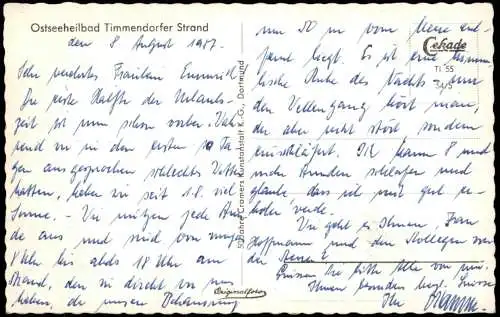 Ostseeheilbad Timmendorfer Strand
den 8 August 1957.
Sehr verehrtes Fräulein
Die erste Hälfte der Urlaubs-
zeit ist nun schon vorbei. Wäh
rend wir in den ersten 10 Ta
gen ausgesprochen schlechtes Wetter
hatten, haben wir seit 1.8. viel
Sonne. - Wir nützen jede
aus und sind von
8 Uhr bis abds 18 Uhr am
Strand, den wir direkt vor uns
haben, da unsere Behausung
nur 50 m vom Meere ent-
fernt liegt. Es ist eine himm-
lische Ruhe des Nachts - nur
den Wellengang hört man,
der aber nicht stört, sondern
einschläfert. Ich kann 8 und
mehr Stunden schlafen und
glaube, dass ich mich gut er-
holen werde.
Wie geht es Ihnen, Frau
Hoffmann und den Kollegen
der
Grüssen Sie bitte Alle von mir.
Ihnen besonders Grüsse
Ihr
Cekade
Ti 55
34/5
Cramers Kunstanstalt K.-G., Dortmund
Originalfoto